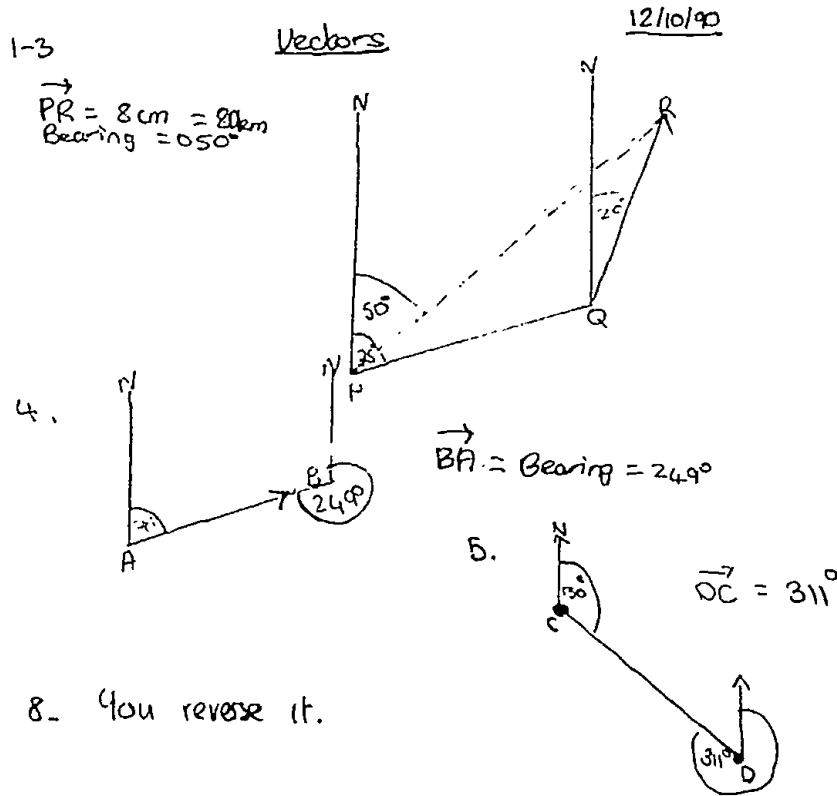 1-3
Vectors
12/10/90
PR = 8cm = 80km
Bearing = 050°
N
N
R
20
50°
75°
Q
P
4.
N
N
B
249°
A
BA = Bearing = 249°
5.
N
130°
C
DC = 311°
311°
D
8- You reverse it.